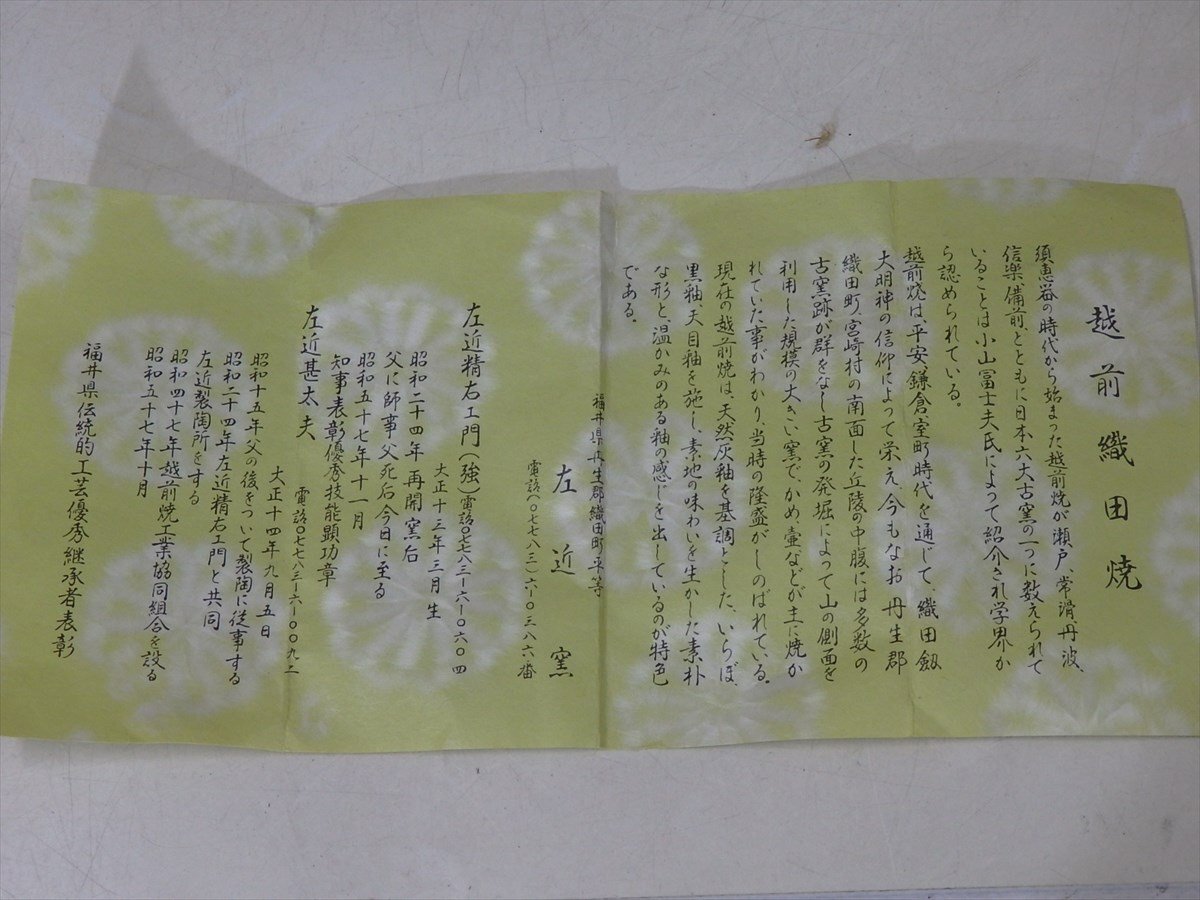 越前織田焼
須恵器の時代から始まった越前焼が瀬戸、常滑、丹波、
信楽、備前、とともに日本六大古窯の一つに数えられて
いることは小山冨士夫氏によって紹介され学界か
ら認められている。
越前焼は、平安、鎌倉、室町時代を通じて、織田劔
大明神の信仰によって栄え、今もなお、丹生郡
織田町、宮崎村の南面した丘陵の中腹には多数の
古窯跡が群をなし古窯の発堀によって山の側面を
利用した規模の大きい窯で、かめ、壷などが主に焼か
れていた事がわかり、当時の隆盛がしのばれている。
現在の越前焼は、天然灰釉を基調とした、いらぼ、
黒釉、天目釉を施し、素地の味わいを生かした素朴
な形と、温かみのある釉の感じを出しているのが特色
である。
福井県丹生郡織田町平等
左近窯
電話(〇七七八三)六-〇三八六番
左近精右エ門(強)電話〇七七八三-六-〇六〇四
大正十三年三月生
昭和二十四年再開窯后
父に師事父死后今日に至る
昭和五十七年十一月
知事表彰優秀技能顕功章
左近甚太夫
電話〇七七八三-六-〇〇九二
大正十四年九月五日
昭和十五年父の後をついて製陶に従事する
昭和二十四年左近精右エ門と共同
左近製陶所をする
昭和四十七年越前焼工業協同組合を設る
昭和五十七年十月
福井県伝統的工芸優秀継承者表彰